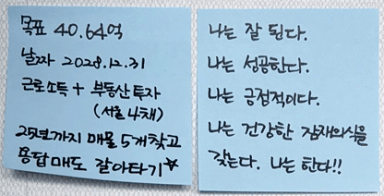 목표 40.64억
날짜 2028.12.31
근로소득 + 부동산투자
(서울 4채)
25년까지 매물 5개찾고
용답매도 갈아타기☆
나는 잘 된다.
나는 성공한다.
나는 긍정적이다.
나는 건강한 잠재의식을
갖는다. 나는 한다!!